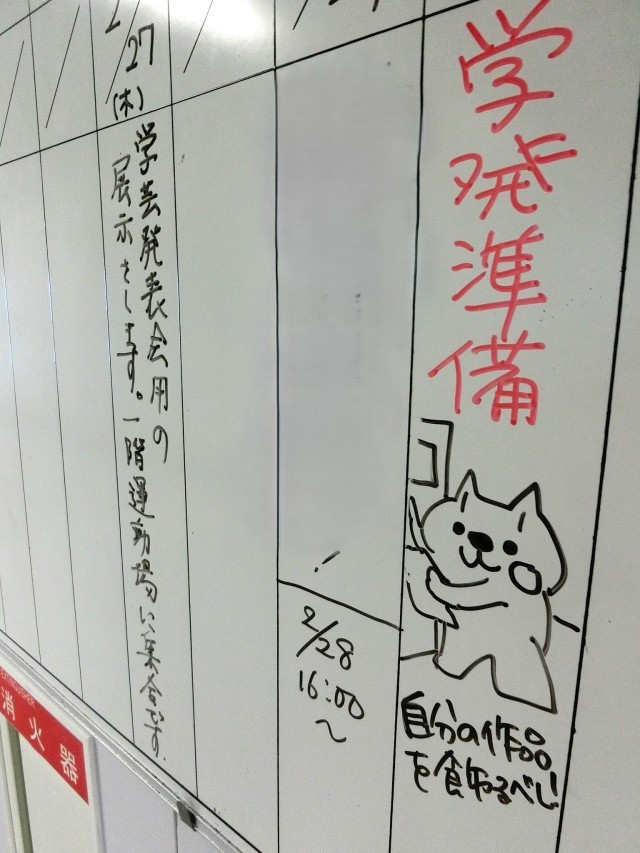 学発準備
自分の作品
を飾るべし!
2/28
16:00
〜
2/27
(木)
学芸発表会用の
展示をします。一階運動場に集合です。
消火器